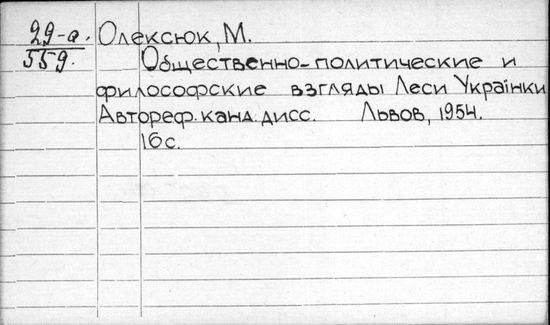 29-а. Олексюк, М.
559. Общественно-политические и
философские взгляды Леси Украінки
Автореф. канд. дисс. Львов, 1954.
16 с.